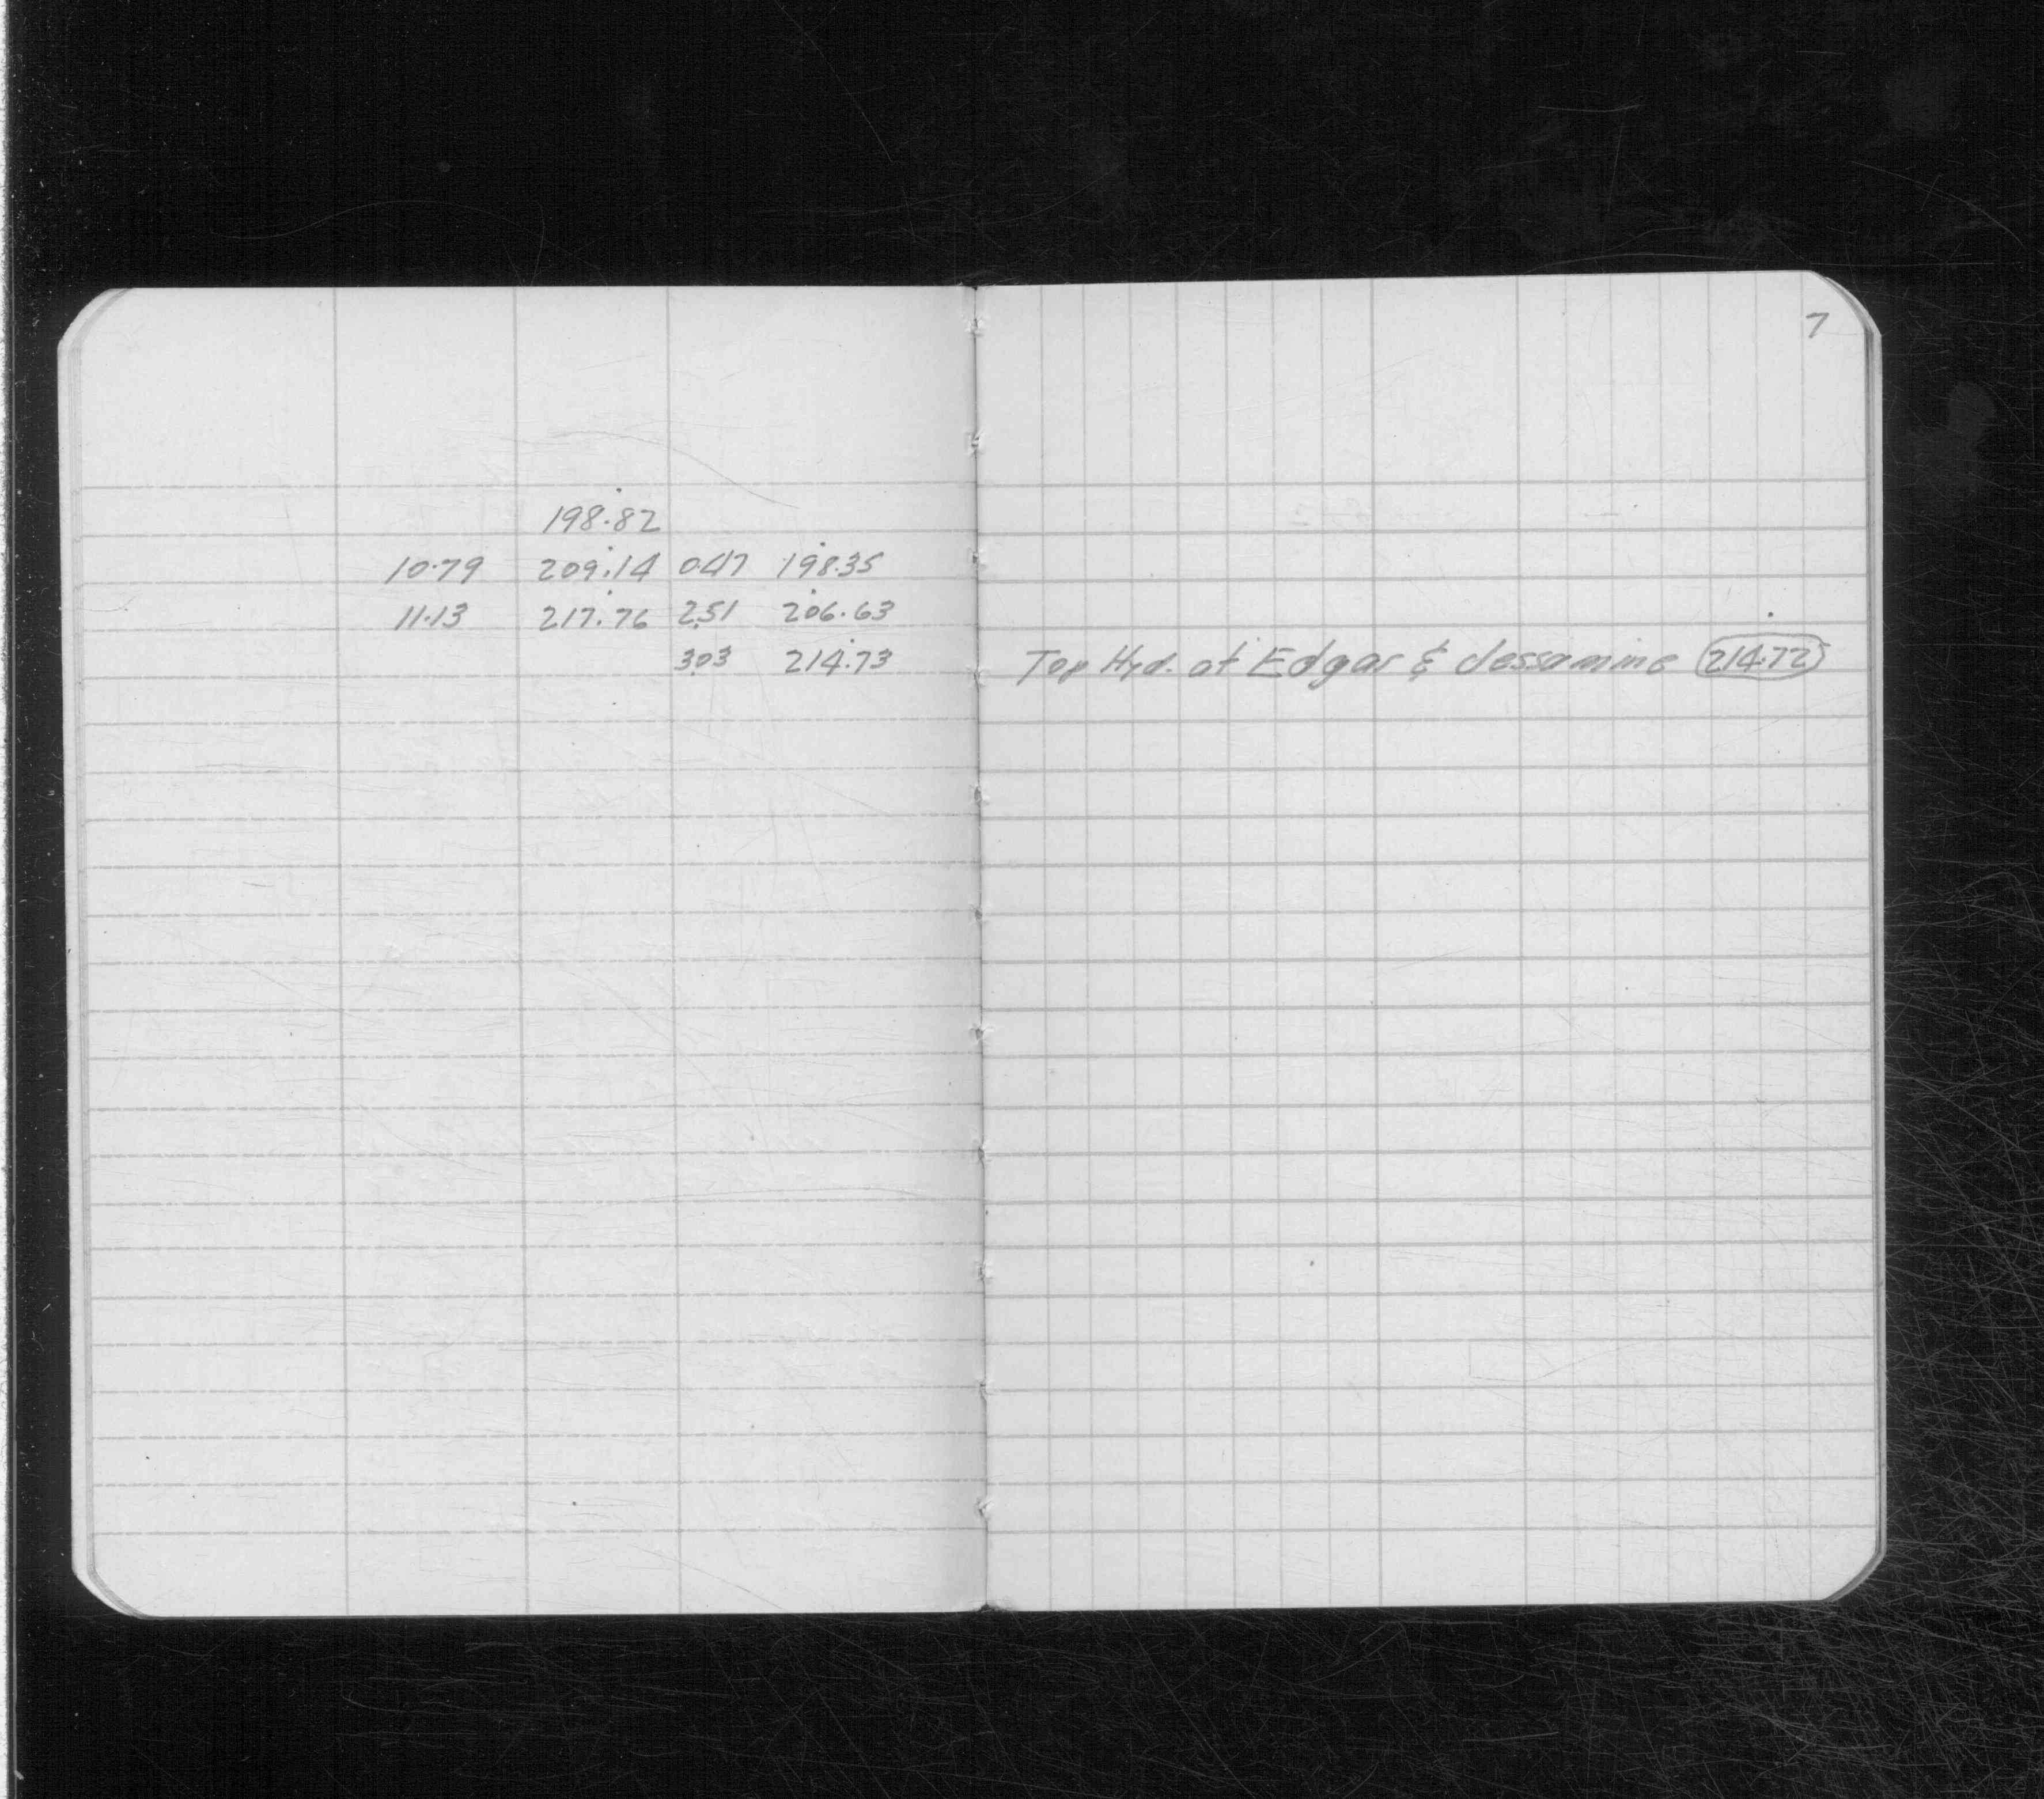 7
198.82
10.79 209.14 0.47 198.35
11.13 217.76 2.51 206.63
3.03 214.73 Top Hyd. at Edgar & Jessamine 214.72